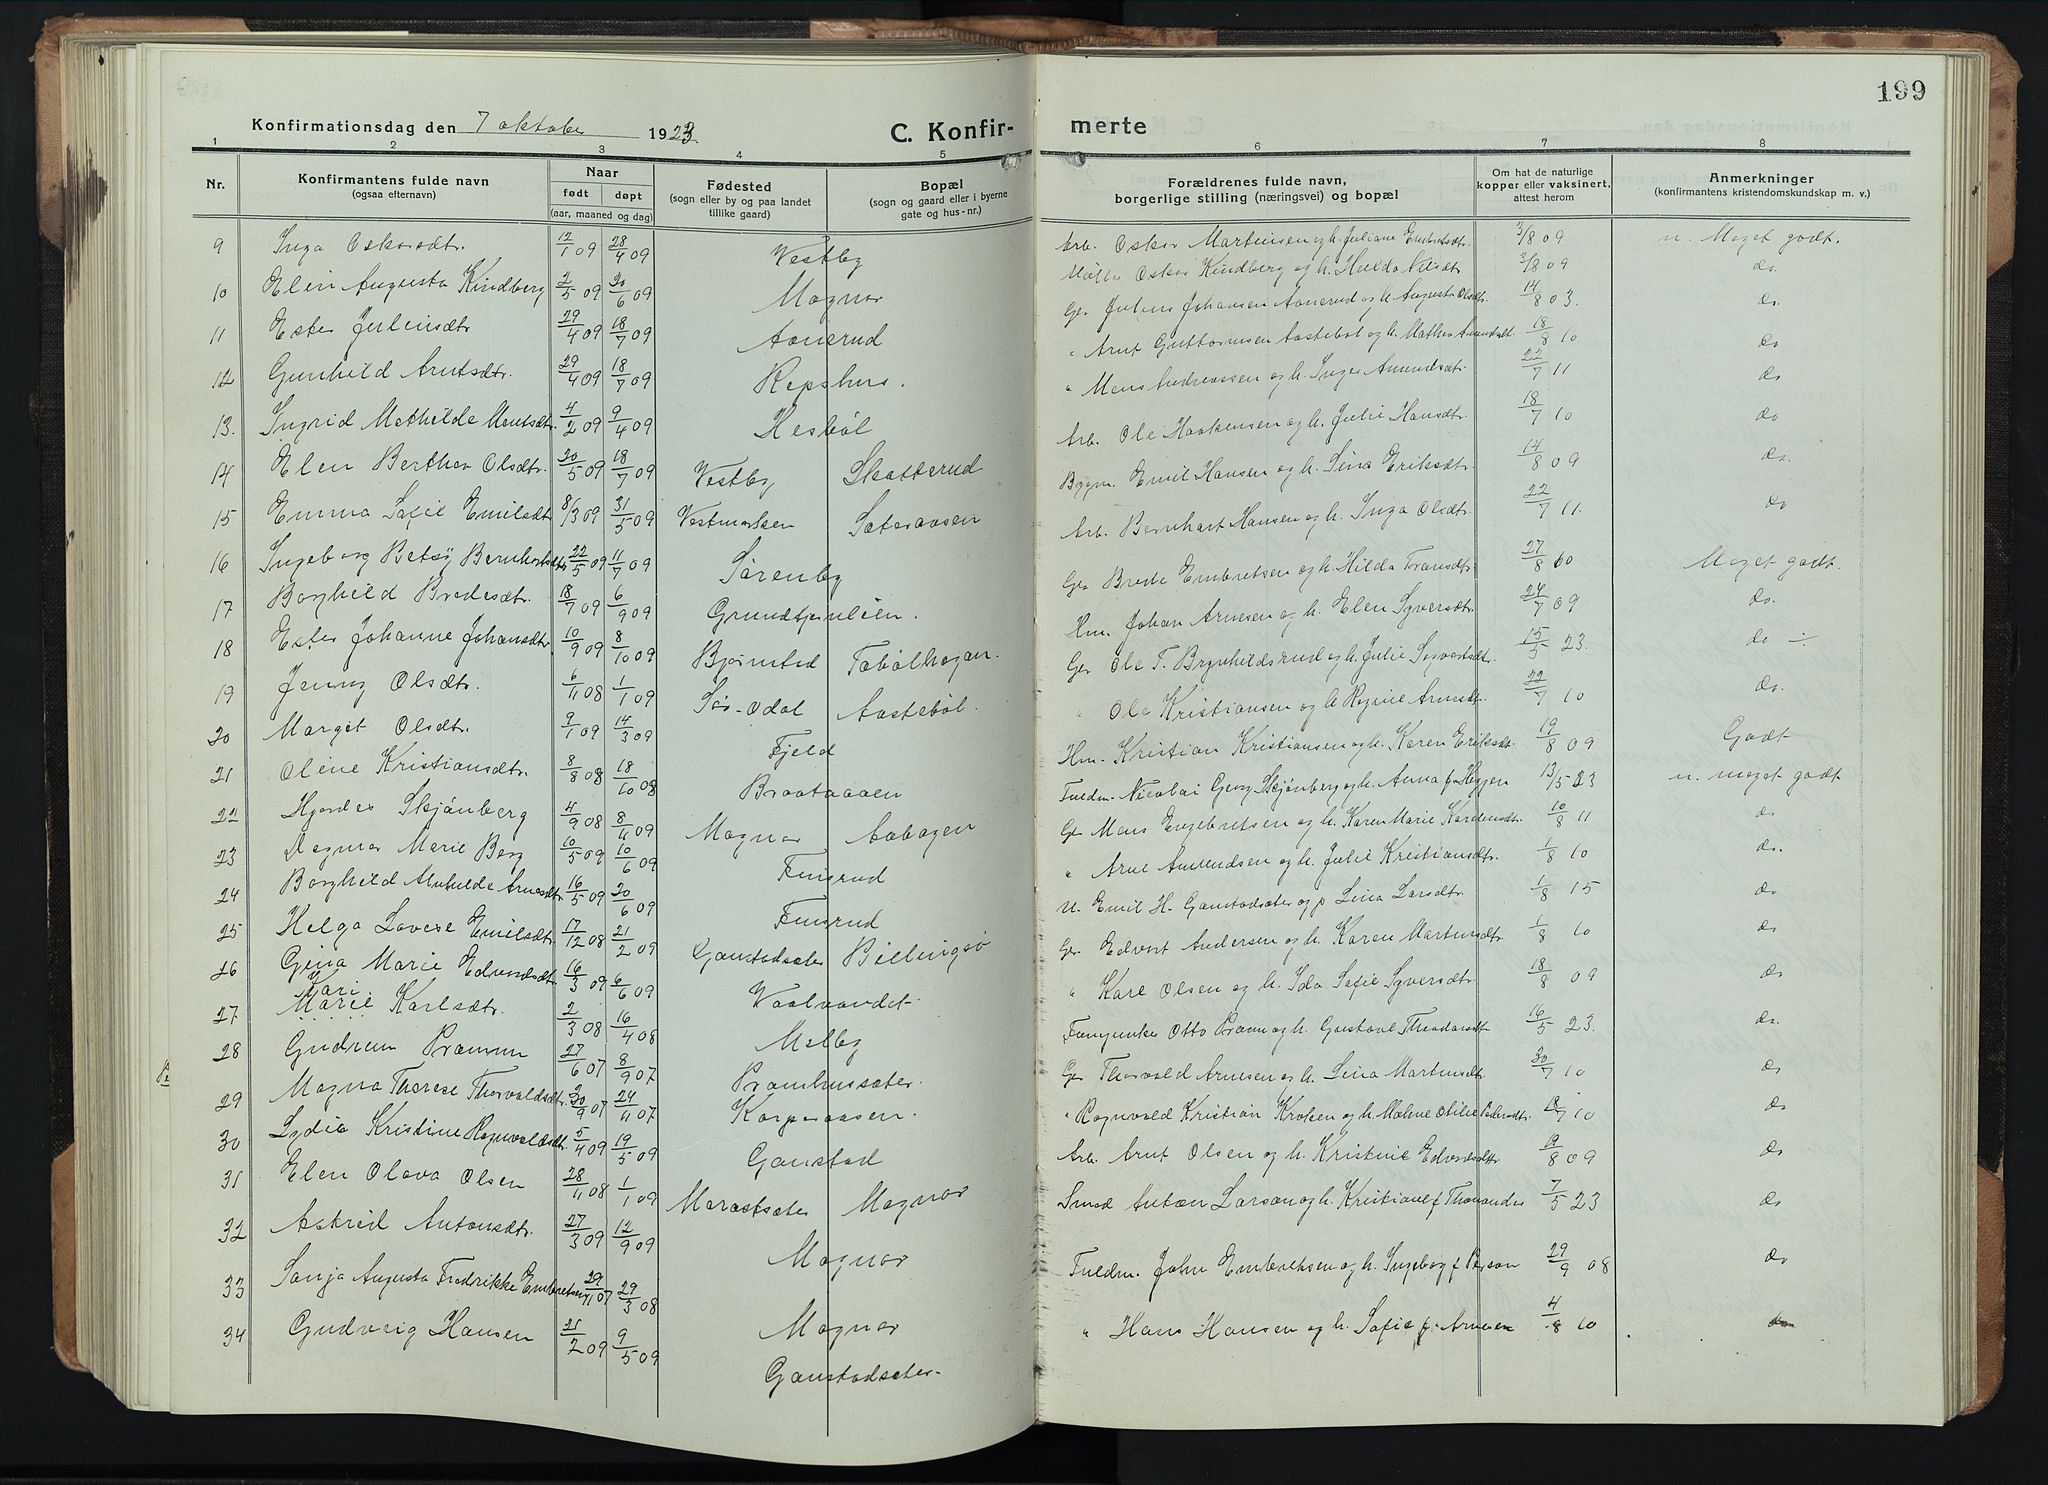 199
Konfirmationsdag den 7 oktober 1923 C. Konfir- merte
1 2 3 4 5 6 7 8
Nr. Konfirmantens fulde navn (ogsaa efternavn) Naar født døpt (aar, maaned og dag) Fødested (sogn eller by og paa landet tillike gaard) Bopæl (sogn og gaard eller i byerne gate og hus-nr.) Forældrenes fulde navn, borgerlige stilling (næringsvei) og bopæl Om hat de naturlige kopper eller vaksinert, attest herom Anmerkninger (konfirmantens kristendomskundskap m. v.)
9 Inga Oskarsdtr. 12/1 09 28/4 09 Vestby Arb. Oskar Martinsen og h. Juliane Embretsdtr. 3/8 09 u. Meget godt.
10 Elin Augusta Kindberg 2/5 09 20/6 09 Magnor Oskar Kindberg og h. Hulda Nilsdtr 3/8 09 do.
11 Ester Juliusdtr 29/4 09 18/7 09 Aanerud Gr. Julius Johansen Aanerud og h. Augusta Olsdtr. 14/8 03. do.
12 Gunhild Arntsdtr. 29/4 09 18/7 09 Repshus. " Arnt Guttormsen Aastebøl og h. Mathea Amundsdtr 18/8 10 do
13. Ingrid Mathilde Monsdtr. 4/2 09 9/4 09 Hesbøl " Mons Andreassen og h. Inger Amundsdtr. 22/7 11 do
14 Elen Berthea Olsdtr. 20/5 09 18/7 09 Vestby Skatterud Arb. Ole Haakensen og h. Julie Hansdtr. 18/7 10 do
15 Emma Sofie Emilsdtr 8/3 09 31/5 09 Vestmarken Sateraasen Bygm. Emil Hansen og h. Lina Eriksdtr. 14/8 09 do.
16 Ingeborg Betsy Bernhartsdtr 22/5 09 11/7 09 Sørenby Arb. Bernhart Hansen og h. Inga Olsdtr. 22/7 11. do
17 Borghild Bredesdtr. 18/7 09 6/9 09 Grundtjernlien. Gr. Brede Embretsen og h. Hilda Transdtr. 27/8 60 Meget godt.
18 Ester Johanne Johansdtr. 10/9 09 8/10 09 Bjørnstad Tabølhagan. Hm. Johan Arnesen og h. Elen Syversdtr. 24/7 09 do.
19 Jenny Olsdtr. 6/11 08 1/1 09 Sør-Odal Aastebøl. Gr. Ole T. Brynhildsrud og h. Julie Syvertsdtr. 15/5 23. do
20 Marget Olsdtr. 9/1 09 14/3 09 Fjeld " Ole Kristiansen og h. Regine Arnesdtr. 22/7 10 do.
21 Oline Kristiansdtr. 8/8 08 18/10 08 Braataaen Hm. Kristian Kristiansen og h. Karen Eriksdtr. 19/8 09 Godt
22 Hjørdes Skjønberg 4/9 08 8/4 09 Magnor Aabogen Fuldm. Nicolai Georg Skjønberg og h. Anna f. Heggen 13/5 23 u. meget godt
23 Dagmar Marie Berg 10/5 09 10/6 09 Finsrud Gr. Mons Engebretsen og h. Karen Marie Karelensdtr. 10/8 11 do
24 Borghild Mathilde Arnesdtr. 16/5 09 20/6 09 Finsrud " Arne Amundsen og h. Julie Kristiansdtr. 1/8 10 do.
25 Helga Lovise Emilsdtr. 17/12 08 21/2 09 Gaustadsæter Billingsø U. Emil H. Gaustadsæter og p. Lina Larsdtr. 1/8 15 do
26 Gina Marie Edvardsdtr. 16/3 09 6/6 09 Vaalvandet. Gr. Edvart Andersen og h. Karen Martinsdtr. 1/8 10 do
Kari
27 Marie Karlsdtr. 2/3 08 16/4 08 Melby " Karl Olsen og h. Ida Sofie Syversdtr. 18/8 09 do
28 Gudrun Pramm 27/6 07 8/9 07 Pramhussæter. Otto Pramm og h. Gustava Theodorsdtr 16/5 23. do.
29 Magna Therese Thorvaldsdtr. 30/9 07 24/11 07 Korperaasen. Gr Thorvald Arnesen og h. Lina Martinsdtr. 30/7 10 do
30 Lydia Kristine Ragnvaldsdtr. 5/4 09 19/5 09 Gaustad " Ragnvald Kristian Kroken og h. Malene Otilie Pedersdtr. 18/7 10 do
31 Elen Olava Olsen 28/11 08 1/1 09 Morastsæter Magnor Arb. Arnt Olsen og h. Kristine Edvardsdtr 19/8 09 do
32 Astrid Antonsdtr. 27/3 09 12/9 09 Magnor Smed Anton Larsson og h. Kristiane f. Thorandes 7/5 23 do
33 Sonja Augusta Fredrikke Embretsen 29/11 07 29/3 08 Magnor Fuldm. John Embretsen og h. Ingeborg f. Person 29/9 08 do
34 Gudveig Hansen 21/2 09 9/5 09 Gaustadsæter. " Hans Hansen og h. Sofie f. Arnesen 4/8 10 do